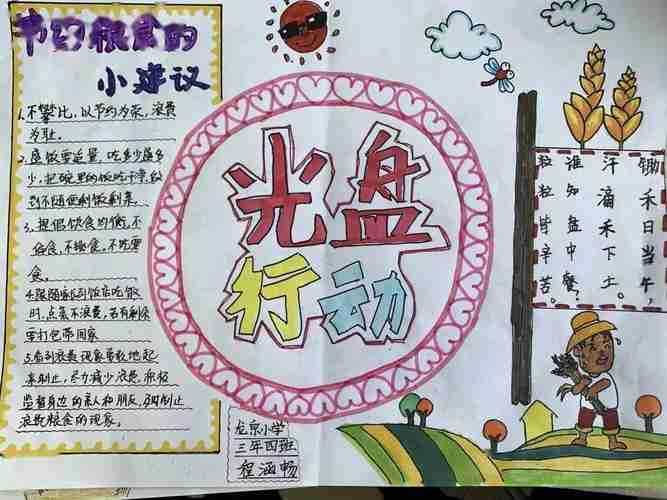 节约粮食的
小建议
1.不攀比，以节约为荣，浪费
为耻。
2.盛饭要适量，吃多少盛多
少，把碗里的饭吃干净，做
到不随便剩饭剩菜
3.提倡饮食均衡，不
偏食，不挑食，不吃零
食。
4.跟随家长到饭店吃饭
时，点菜不浪费，若有剩余
要打包带回家
5.看到浪费现象勇敢地起
来制止，尽力减少浪费，积极
监督身边的亲人和朋友，及时制止
浪费粮食的现象。
光盘
行动
锄禾日当午，
汗滴禾下土。
谁知盘中餐，
粒粒皆辛苦。
龙京小学
三年四班
程涵畅